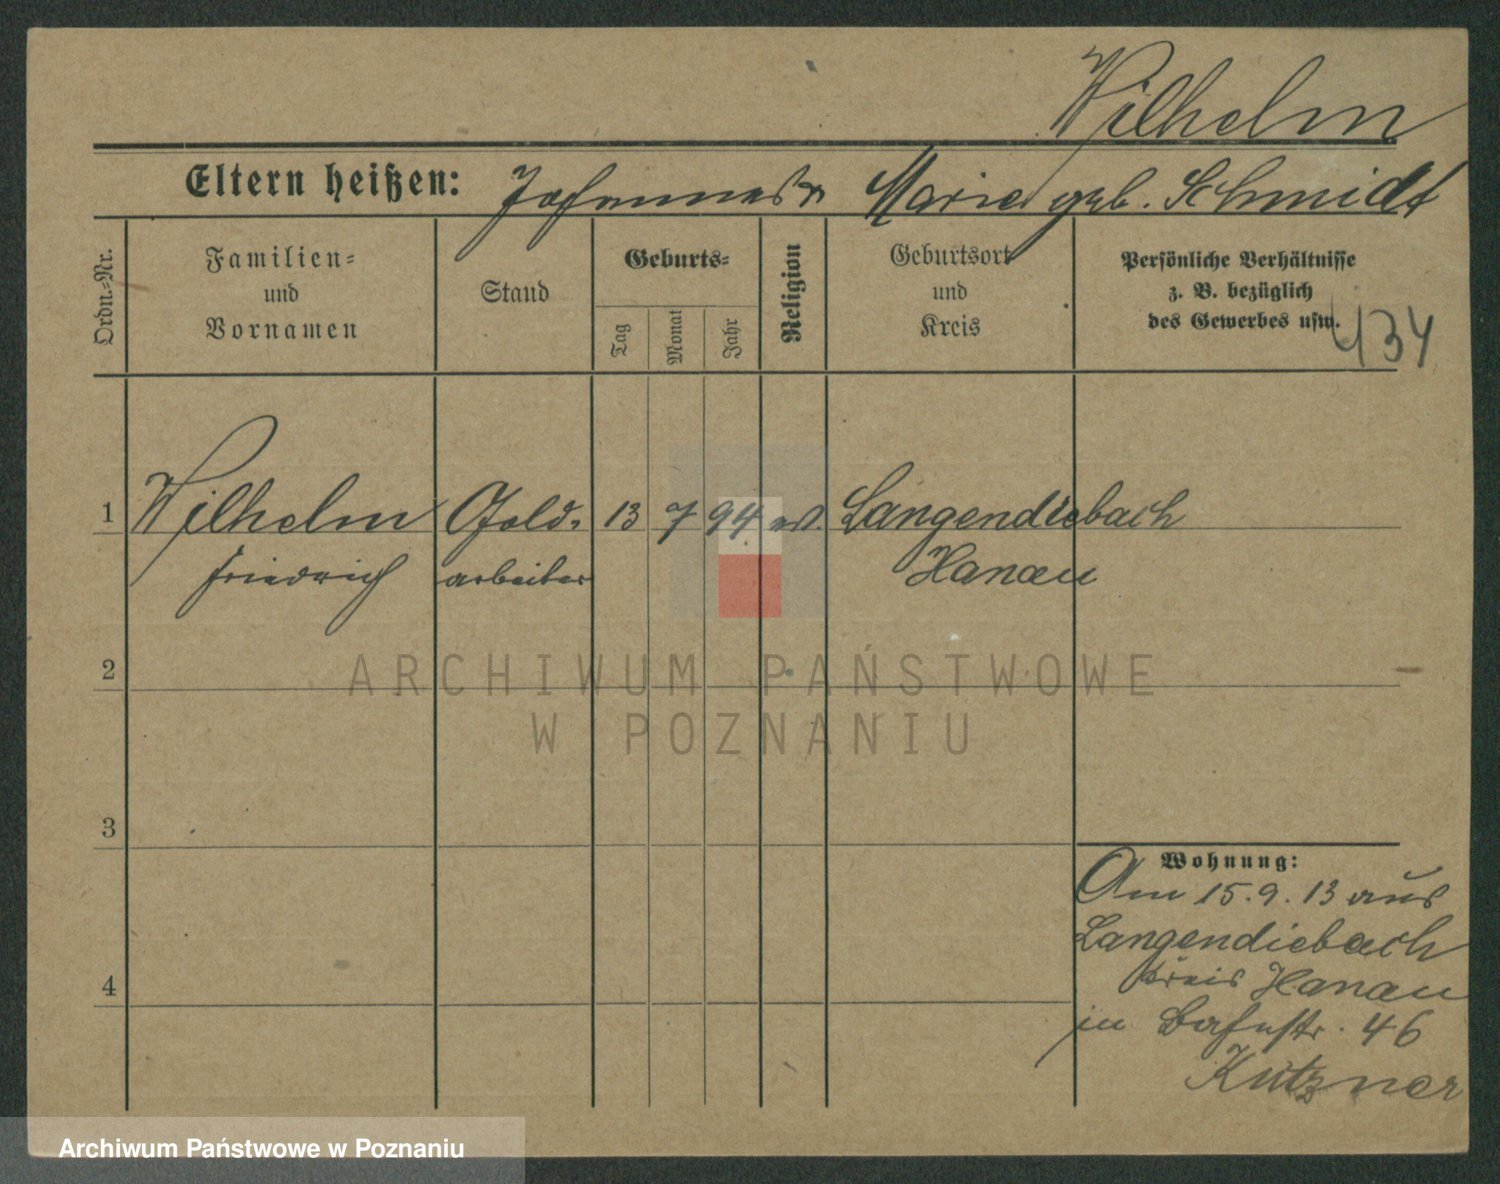 Wilhelm
Eltern heißen: Johannes u Marie geb. Schmidt
Ordn.-Nr.
Familien-
und
Vornamen
Stand
Geburts-
Tag
Monat
Jahr
Religion
Geburtsort
und
Kreis
Persönliche Verhältnisse
z. B. bezüglich
des Gewerbes usw.
434
1 Wilhelm Gold- 13 7 94 ev. Langendiebach
Friedrich arbeiter Hanau
2
3
4
Wohnung:
Am 15.9.13 aus
Langendiebach
Kreis Hanau
in Bahnstr. 46
Kutzner
ARCHIWUM PAŃSTWOWE
W POZNANIU
Archiwum Państwowe w Poznaniu